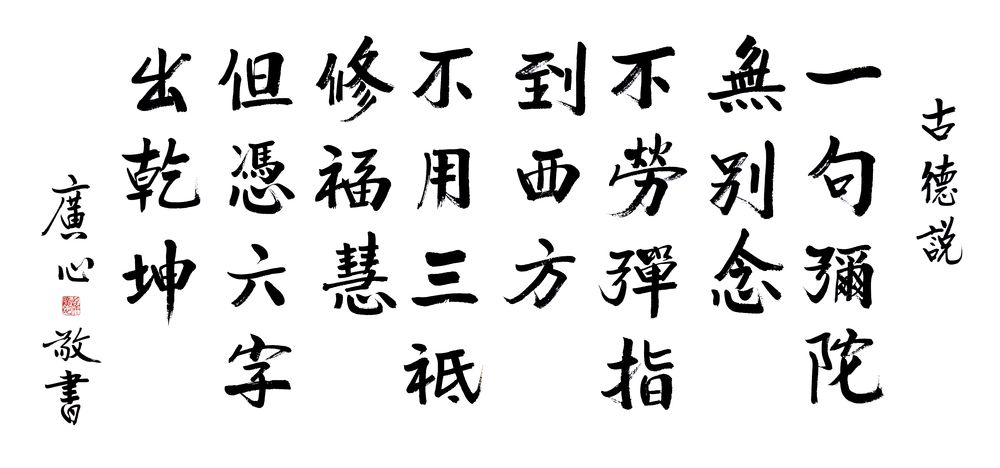 古德説
一句彌陀
無別念
不勞彈指
到西方
不用三祇
修福慧
但憑六字
出乾坤
廣心敬書